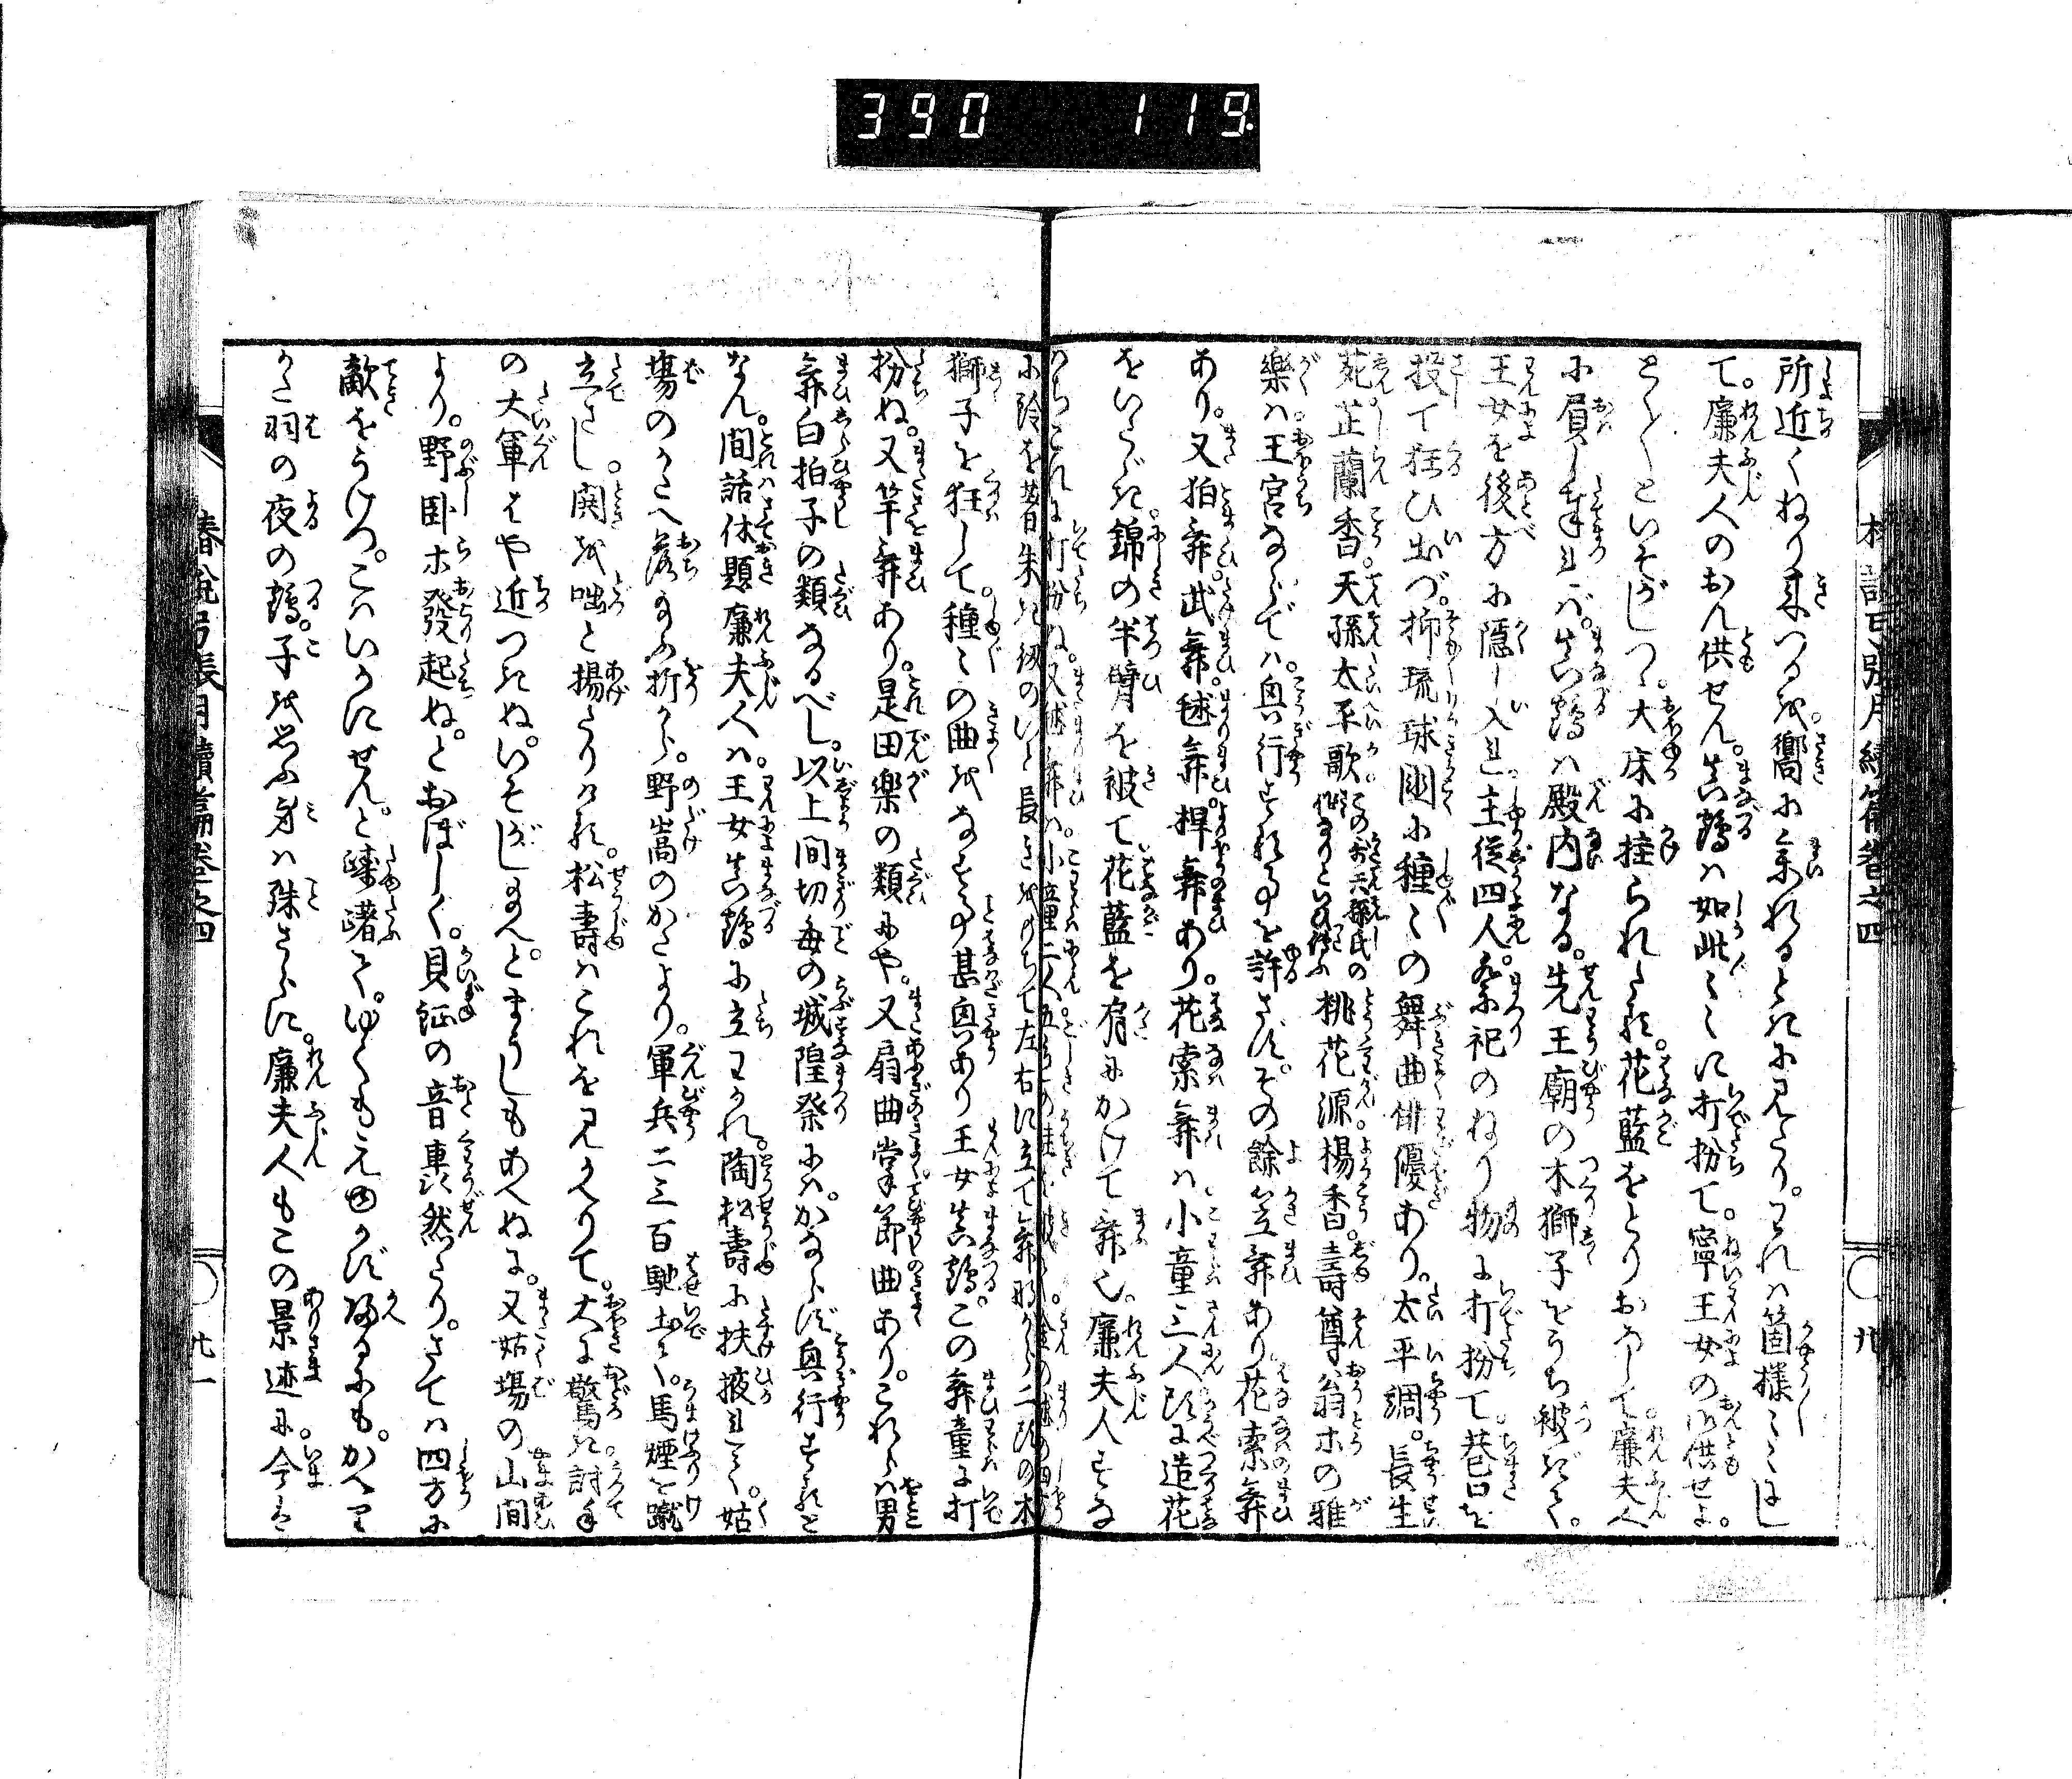 390 119.
所近くねり来つるを。嚮に来れるときに見たり。それは箇様〻〻にし
て。廉夫人のおん供せん。真鶴は如此〻〻に打扮て。寧王女の御供せよ。
とく〳〵といそがしつゝ。大床に掛られたる。花籃をとりおろして廉夫人
に屓し奉れば。真鶴は殿内なる。先王廟の木獅子をうち被ぎて。
王女を後方に隠し入れ。主従四人。祭祀のねり物に打扮て。巷口を
投て狂ひ出づ。抑琉球国に種〻の舞曲俳優あり。太平調。長生
苑。芷蘭香。天孫太平歌。桃花源。楊香。壽尊翁ホの雅
楽は王宮ならでは。興行する事を許さず。その餘笠舞あり。花索舞
あり。又拍舞。武舞。毬舞。桿舞あり。花索舞は小童三人項に造花
をいたゞき。錦の半臂を被て花籃を肩にかけて舞也。廉夫人すな
はちこれに打扮ぬ。又毬舞は。小童二人五色の
に鈴を着朱き紐のいと長きをもちて左右に立て舞ながら二頭の木
獅子を狂して。種〻の曲をなす事甚興あり王女真鶴。この舞童に打
扮ぬ。又竿舞あり。是田楽の類にや。又扇曲掌節曲あり。これらは男
舞白拍子の類なるべし。以上間切毎の城隍祭には。かならず興行するとぞ
なん。間話休題廉夫人は。王女真鶴に立わかれ。陶松壽に扶掖れて。姑
場のかたへ落給ふ折から。野嵩のかたより。軍兵二三百馳出て。馬煙を蹴
立さし。閧を咄と揚たりける。松壽はこれを見かへりて。大に驚き討手
の大軍はや近つきぬ。いそがしまへ。とまうしもあへぬに。又姑場の山間
より。野臥ホ發起ぬ。とおぼしく。貝鉦の音轟然たり。さては四方に
敵をうけつ。こはいかにせん。と躊躇て。ゆくもえ由かず歸るにも。かへり
かた羽の夜の鶴。子を思ふ身は殊さらに。廉夫人もこの景迹に。今は
椿説弓張月續篇巻之四
廿一